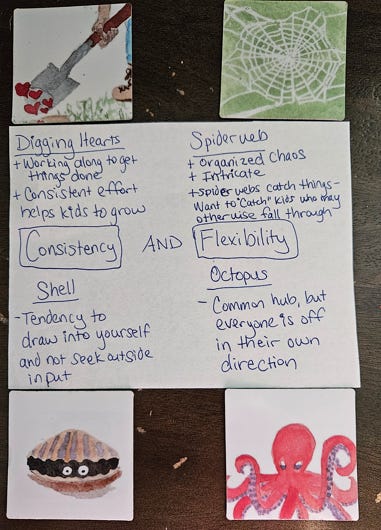 Digging Hearts
+ Working along to get
things done
+ Consistent effort
helps kids to grow
Spiderweb
+ Organized chaos
+ Intricate
+ Spider webs catch things-
Want to "Catch" kids who may
otherwise fall through
Consistency AND Flexibility
Shell
- Tendency to
draw into yourself
and not seek outside
input
Octopus
- Common hub, but
everyone is off
in their own
direction